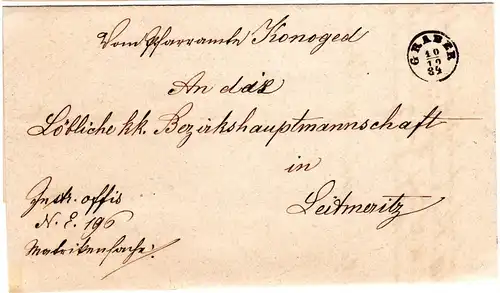 Vom Pfarramte Konoged
GRABER
10
12
84
An das
Löbliche kk. Bezirkshauptmannschaft
in
Leitmeritz
offis
N. E. 196
Matrikensache.